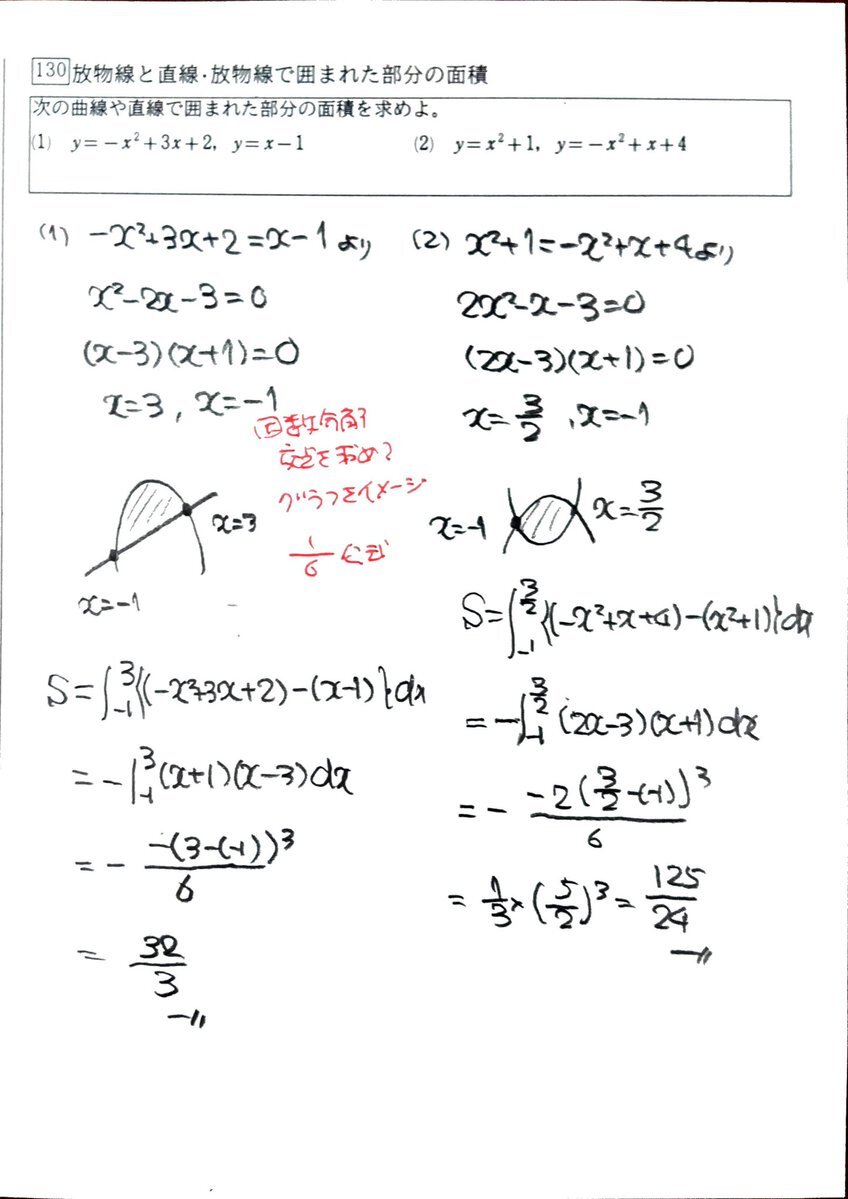 130 放物線と直線・放物線で囲まれた部分の面積
次の曲線や直線で囲まれた部分の面積を求めよ。
(1) y=−x²+3x+2, y=x−1 (2) y=x²+1, y=−x²+x+4
(1) −x²+3x+2=x−1より
x²−2x−3=0
(x−3)(x+1)=0
x=3, x=−1
交点を求め?
グラフをイメージ
1/6 公式
x=3
x=−1
S=∫₋₁³{(−x²+3x+2)−(x−1)}dx
=−∫₋₁³(x+1)(x−3)dx
=− −(3−(−1))³/6
= 32/3
(2) x²+1=−x²+x+4より
2x²−x−3=0
(2x−3)(x+1)=0
x=3/2, x=−1
x=−1 x=3/2
S=∫₋₁^{3/2}{(−x²+x+4)−(x²+1)}dx
=−∫₋₁^{3/2}(2x−3)(x+1)dx
=− −2(3/2−(−1))³/6
=1/3×(5/2)³=125/24